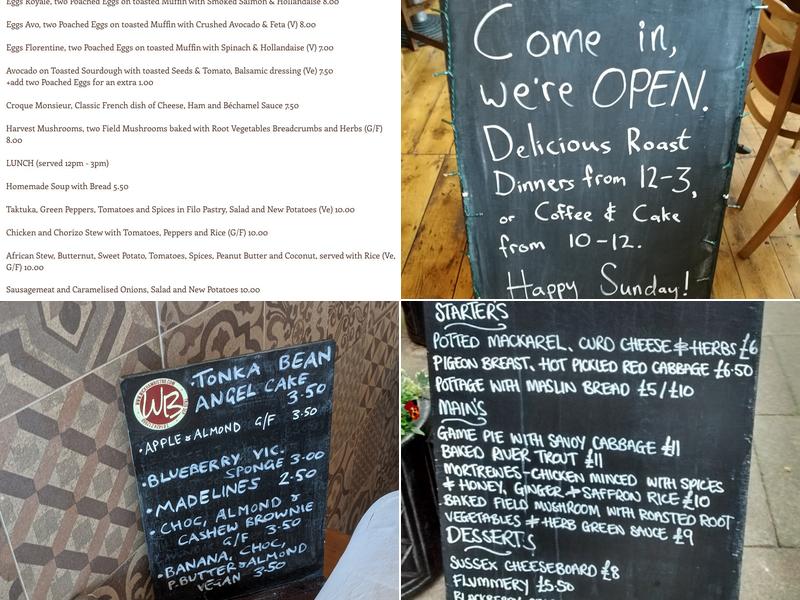 Eggs Royale, two Poached Eggs on toasted Muffin with Smoked Salmon & Hollandaise 8.00
Eggs Avo, two Poached Eggs on toasted Muffin with Crushed Avocado & Feta (V) 8.00
Eggs Florentine, two Poached Eggs on toasted Muffin with Spinach & Hollandaise (V) 7.00
Avocado on Toasted Sourdough with toasted Seeds & Tomato, Balsamic dressing (Ve) 7.50
+add two Poached Eggs for an extra 1.00
Croque Monsieur, Classic French dish of Cheese, Ham and Béchamel Sauce 7.50
Harvest Mushrooms, two Field Mushrooms baked with Root Vegetables Breadcrumbs and Herbs (G/F)
8.00
LUNCH (served 12pm - 3pm)
Homemade Soup with Bread 5.50
Taktuka, Green Peppers, Tomatoes and Spices in Filo Pastry, Salad and New Potatoes (Ve) 10.00
Chicken and Chorizo Stew with Tomatoes, Peppers and Rice (G/F) 10.00
African Stew, Butternut, Sweet Potato, Tomatoes, Spices, Peanut Butter and Coconut, served with Rice (Ve,
G/F) 10.00
Sausagemeat and Caramelised Onions, Salad and New Potatoes 10.00
Come in,
we're OPEN.
Delicious Roast
Dinners from 12-3,
or Coffee & Cake
from 10-12.
Happy Sunday!
WB
•TONKA BEAN
ANGEL CAKE
3.50
•APPLE & ALMOND G/F 3.50
•BLUEBERRY VIC.
SPONGE 3.00
•MADELINES 2.50
•CHOC, ALMOND &
CASHEW BROWNIE
G/F 3.50
•BANANA, CHOC,
P.BUTTER & ALMOND
VEGAN 3.50
STARTERS
POTTED MACKAREL, CURD CHEESE & HERBS £6
PIGEON BREAST, HOT PICKLED RED CABBAGE £6.50
POTTAGE WITH MASLIN BREAD £5/£10
MAIN'S
GAME PIE WITH SAVOY CABBAGE £11
BAKED RIVER TROUT £11
MORTREWES-CHICKEN MINCED WITH SPICES
& HONEY, GINGER + SAFFRON RICE £10
BAKED FIELD MUSHROOM WITH ROASTED ROOT
VEGETABLES & HERB GREEN SAUCE £9
DESSERTS
SUSSEX CHEESEBOARD £8
FLUMMERY £5.50